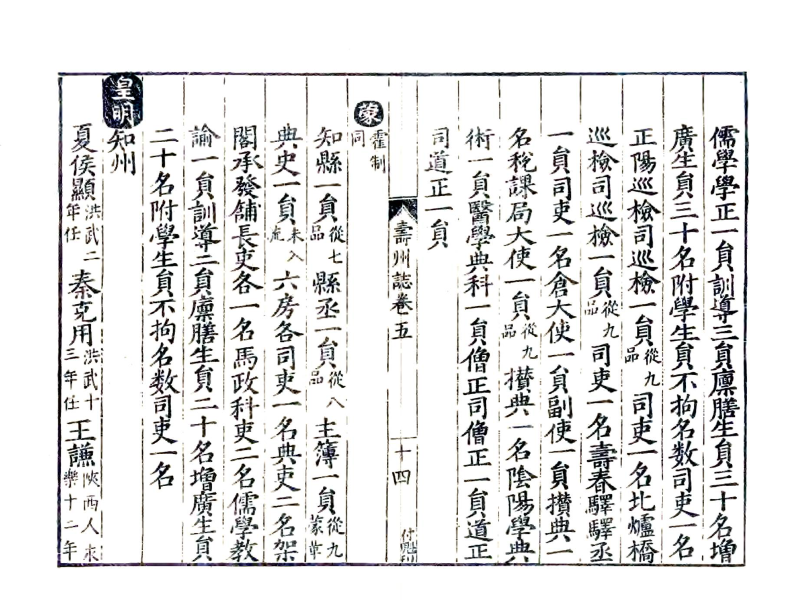 儒學學正一員訓導三員廩膳生員三十名增
廣生員三十名附學生員不拘名数司吏一名
正陽巡檢司巡檢一員從九品司吏一名北爐橋
巡檢司巡檢一員從九品司吏一名壽春驛驛丞
一員司吏一名倉大使一員副使一員攅典一
名稅課局大使一員從九品攅典一名陰陽學典
術一員醫學典科一員僧正司僧正一員道正
司道正一員
蒙霍制同
壽州誌卷五
十四
知縣一員從七品縣丞一員從八品主簿一員從九蒙革
典史一員未入流六房各司吏一名典吏二名架
閣承發舖長吏各一名馬政科吏二名儒學教
諭一員訓導二員廩膳生員二十名增廣生員
二十名附學生員不拘名数司吏一名
皇明知州
夏侯顯洪武二年任秦克用洪武十三年任王謙陝西人永樂十二年